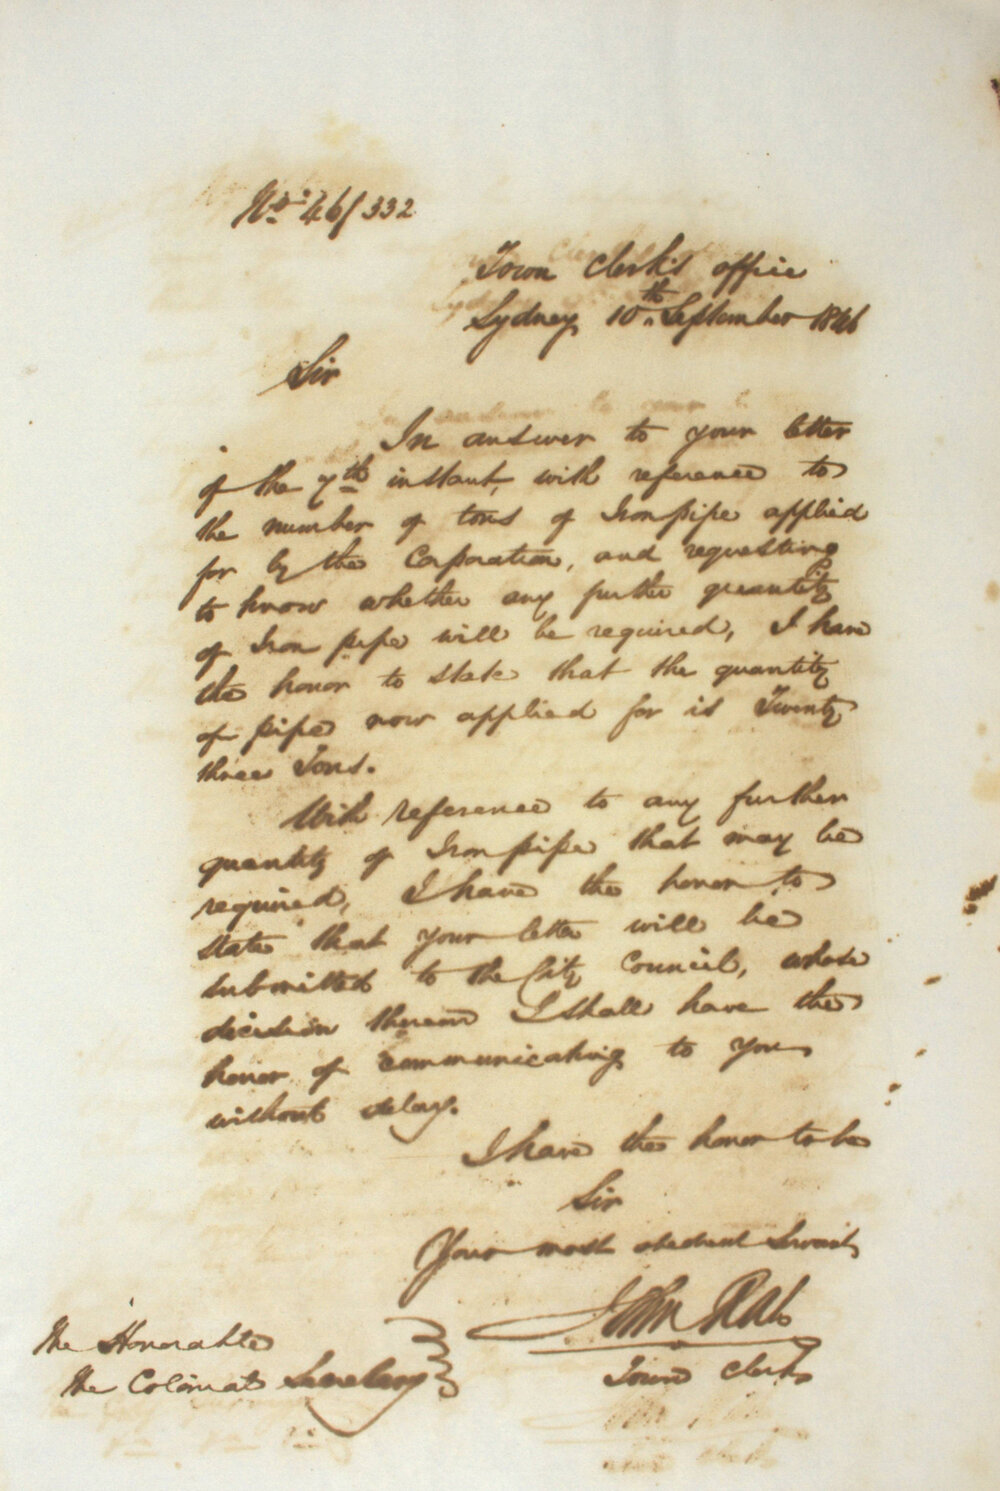 No. 46/332
Town Clerk's office
Sydney 10th September 1846
Sir
In answer to your letter
of the 7th instant, with reference to
the number of tons of Iron pipe applied
for by the Corporation, and requesting
to know whether any further quantity
of Iron pipe will be required, I have
the honor to state that the quantity
of pipe now applied for is Twenty
three Tons.
With reference to any further
quantity of Iron pipe that may be
required, I have the honor to
state that your letter will be
submitted to the City Council, whose
decision thereon I shall have the
honor of communicating to you
without delay.
I have the honor to be
Sir
Your most obedient Servant
John Rae
Town Clerk
The Honorable
The Colonial Secretary